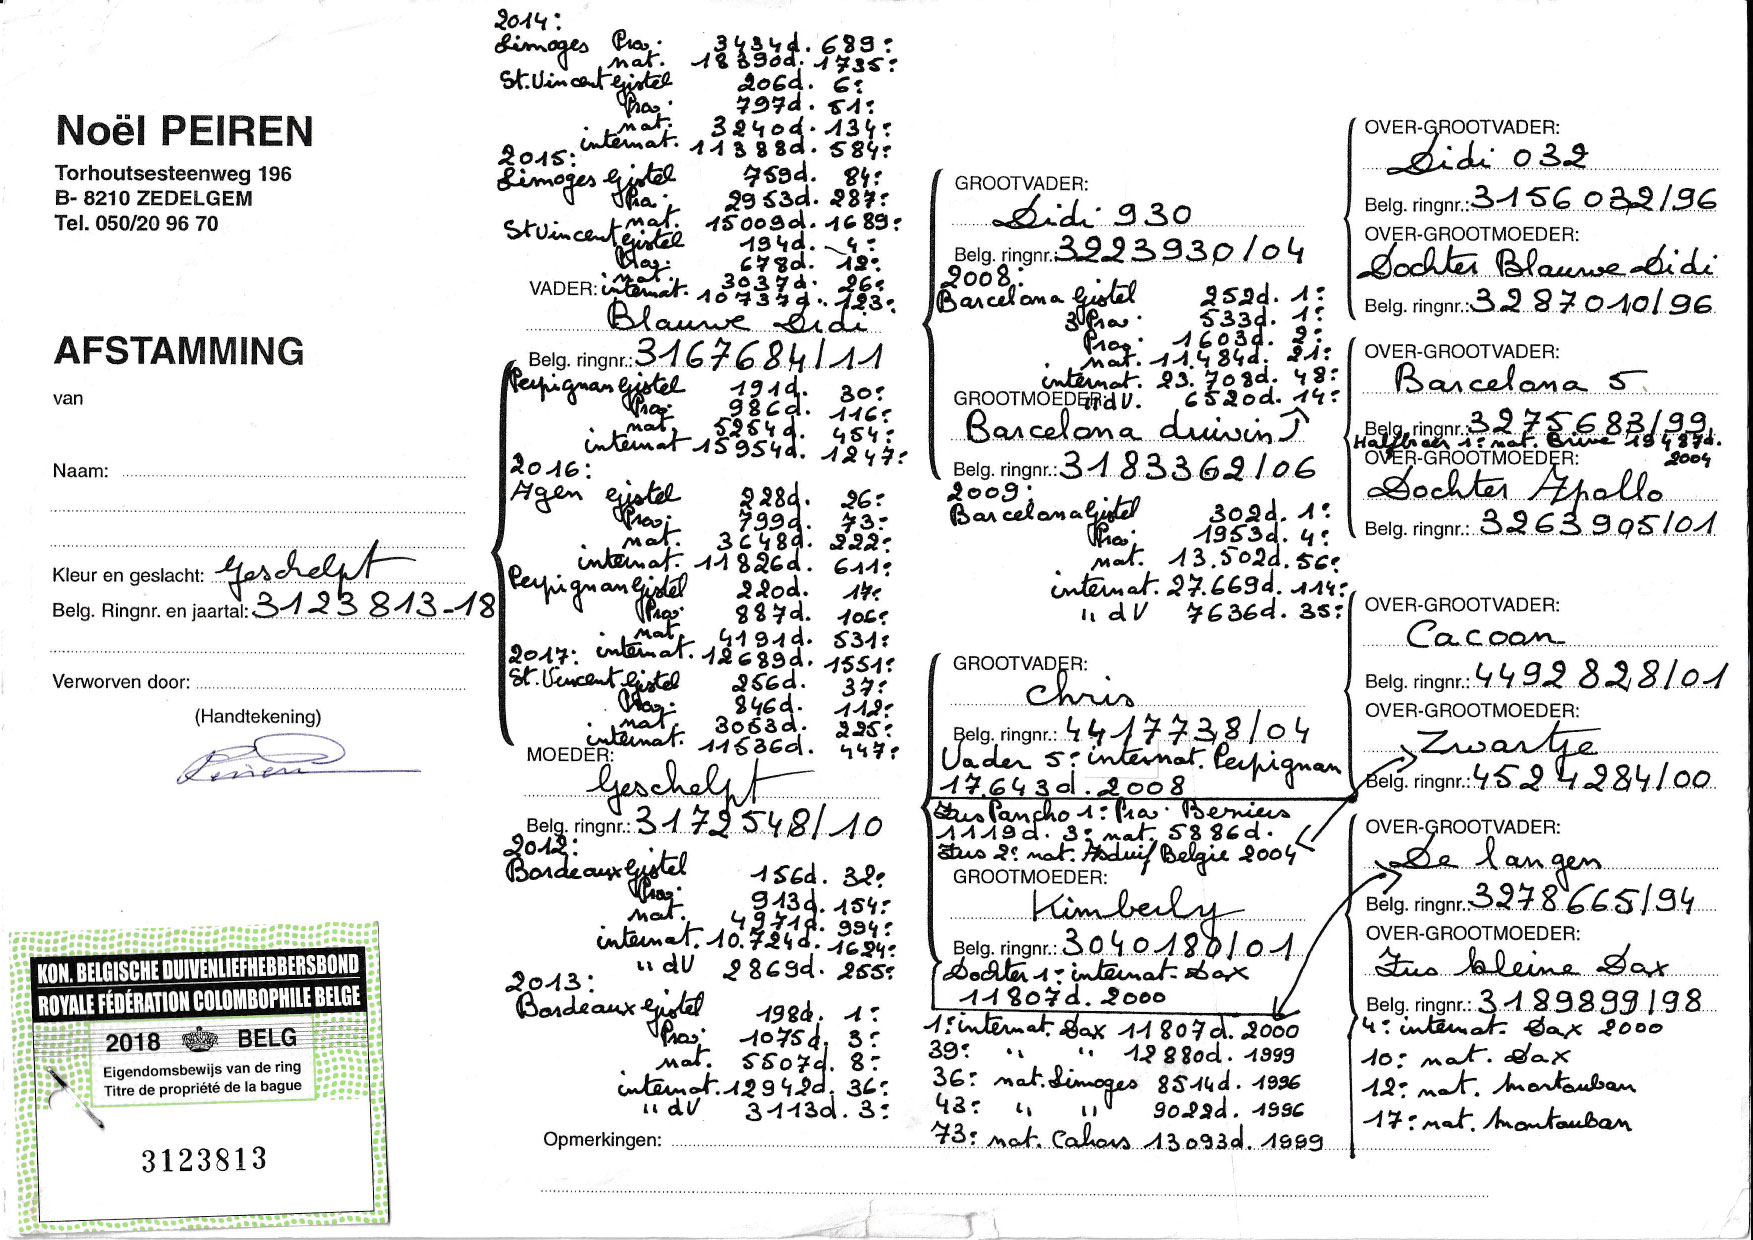 Noël PEIREN
Torhoutsesteenweg 196
B- 8210 ZEDELGEM
Tel. 050/20 96 70
AFSTAMMING
van
Naam:
Kleur en geslacht: Geschelpt
Belg. Ringnr. en jaartal: 3123813-18
Verworven door:
(Handtekening)
KON. BELGISCHE DUIVENLIEFHEBBERSBOND
ROYALE FÉDÉRATION COLOMBOPHILE BELGE
2018 BELG
Eigendomsbewijs van de ring
Titre de propriété de la bague
3123813
2014:
Limoges Prov. 3434d. 689:
nat. 18390d. 1735:
St. Vincent Gistel 206d. 6:
Prov. 797d. 51:
nat. 3240d. 134:
internat. 11388d. 584:
2015:
Limoges Gistel 759d. 84:
Prov. 2953d. 287:
nat. 15009d. 1689:
St Vincent Gistel 194d. 4:
Prov. 678d. 12:
nat. 3037d. 26:
VADER: internat. 10737d. 123:
Blauwe Didi
Belg. ringnr.: 3167684/11
Perpignan Gistel 191d. 30:
Prov. 986d. 116:
nat. 5254d. 454:
internat 15954d. 1247:
2016:
Agen Gistel 228d. 26:
Prov. 799d. 73:
nat. 3648d. 222:
internat. 11826d. 611:
Perpignan Gistel 220d. 17:
Prov 887d. 106:
nat. 4191d. 531:
2017: internat. 12689d. 1551:
St. Vincent Gistel 256d. 37:
Prov. 846d. 112:
nat. 3053d. 225:
internat. 11536d. 447:
MOEDER:
Geschelpt
Belg. ringnr.: 3172548/10
2012:
Bordeaux Gistel 156d. 32:
Prov. 913d. 154:
nat. 4971d. 994:
internat. 10.724d. 1624:
" dV 2869d. 255:
2013:
Bordeaux Gistel 198d. 1:
Prov. 1075d. 3:
nat. 5507d. 8:
internat. 12942d. 36:
" dV 3113d. 3:
Opmerkingen:
GROOTVADER:
Didi 930
Belg. ringnr.: 3223930/04
2008:
Barcelona Gistel 252d. 1:
3 Prov. 533d. 1:
Prov. 1603d. 2:
nat. 11.484d. 21:
internat. 23.708d. 48:
GROOTMOEDER: " dV. 6520d. 14:
Barcelona duivin
Belg. ringnr.: 3183362/06
2009:
Barcelona Gistel 302d. 1:
Prov. 1953d. 4:
nat. 13.502d. 56:
internat. 27.669d. 114:
" dV 7636d. 35:
GROOTVADER:
Chris
Belg. ringnr.: 4417738/04
Vader 5: internat. Perpignan
17.643d. 2008
Zus Pancho 1: Prov. Berniers
1119d. 3: nat. 5886d.
Zus 2: nat. Asduif Belgie 2004
GROOTMOEDER:
Kimberly
Belg. ringnr.: 3040180/01
Dochter 1: internat. Dax
11807d. 2000
1: internat. Dax 11807d. 2000
39: " " 12880d. 1999
36: nat. Limoges 8514d. 1996
43: " " 9022d. 1996
73: nat. Cahors 13093d. 1999
OVER-GROOTVADER:
Didi 032
Belg. ringnr.: 3156032/96
OVER-GROOTMOEDER:
Dochter Blauwe Didi
Belg. ringnr.: 3287010/96
OVER-GROOTVADER:
Barcelona 5
Belg. ringnr.: 3275683/99
Halfbroer 1: nat. Brive 19487d.
OVER-GROOTMOEDER: 2004
Dochter Apollo
Belg. ringnr.: 3263905/01
OVER-GROOTVADER:
Cacoan
Belg. ringnr.: 4492828/01
OVER-GROOTMOEDER:
Zwartje
Belg. ringnr.: 4524284/00
OVER-GROOTVADER:
De langen
Belg. ringnr.: 3278665/94
OVER-GROOTMOEDER:
Zus kleine Dax
Belg. ringnr.: 3189899/98
4: internat. Dax 2000
10: nat. Dax
12: nat. Montauban
17: nat. Montauban